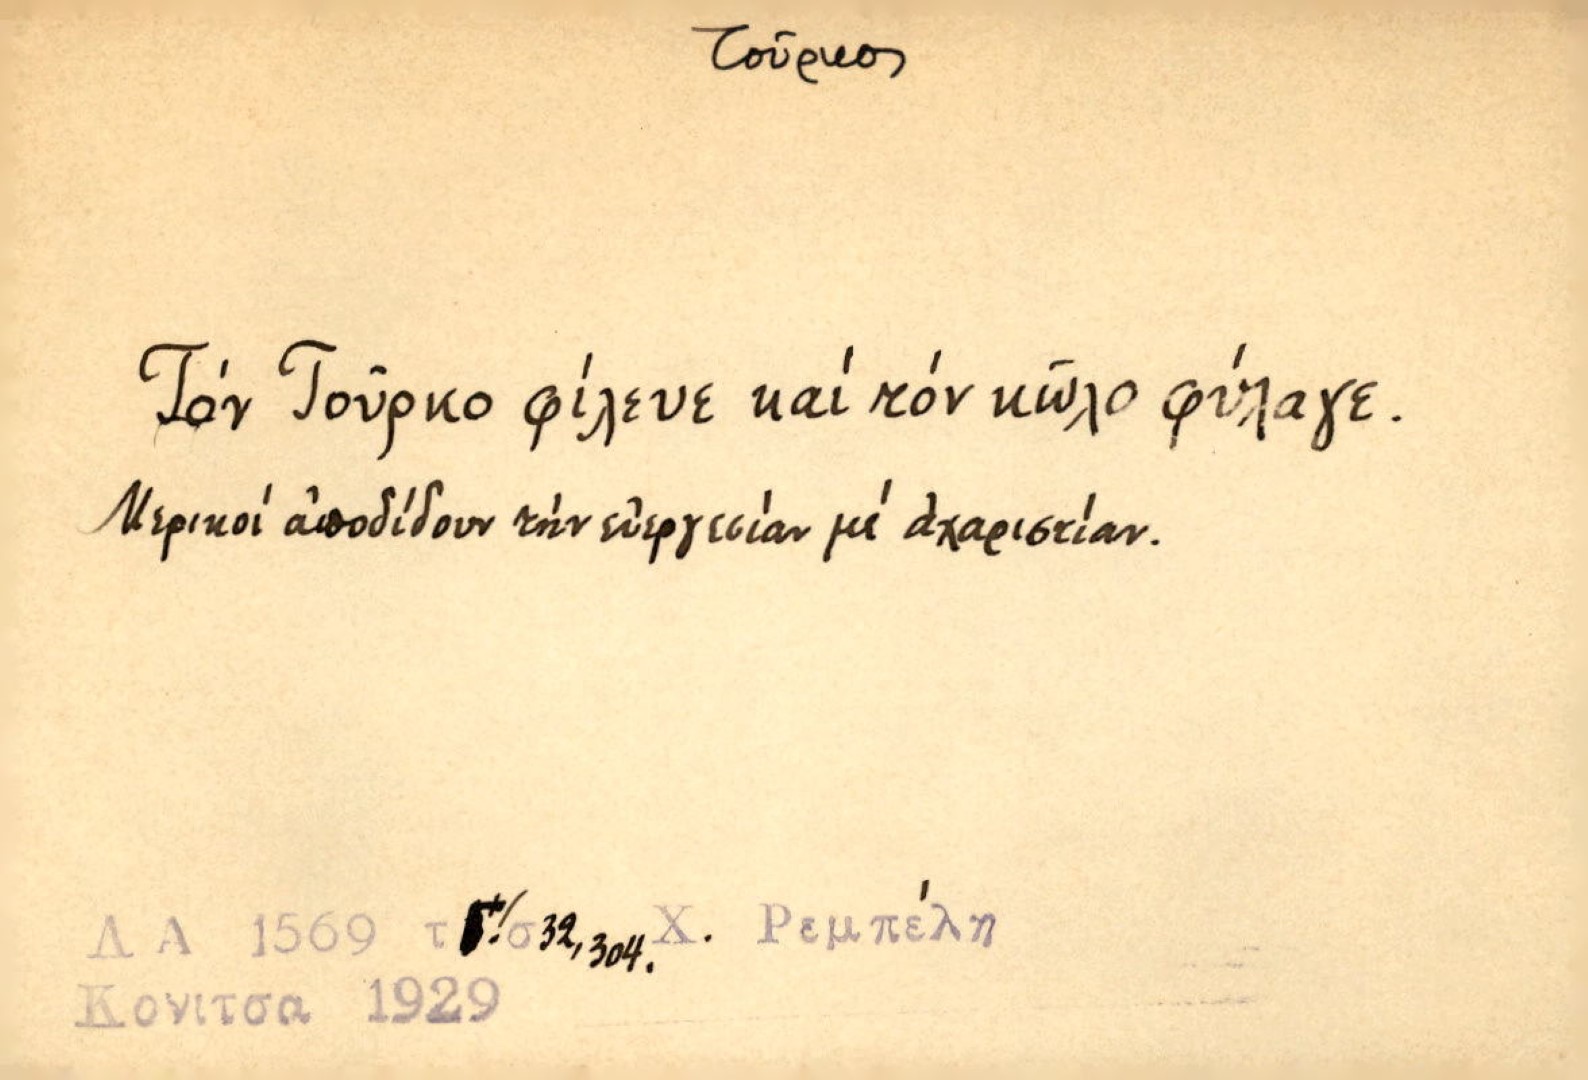 Τοῦρκος
Τόν Τοῦρκο φίλευε καί τόν κῶλο φύλαγε.
Μερικοί ἀποδίδουν τήν εὐεργεσίαν μέ ἀχαριστίαν.
Λ Α 1569 τ σ 32, 304. Χ. Ρεμπέλη
Κονιτσα 1929